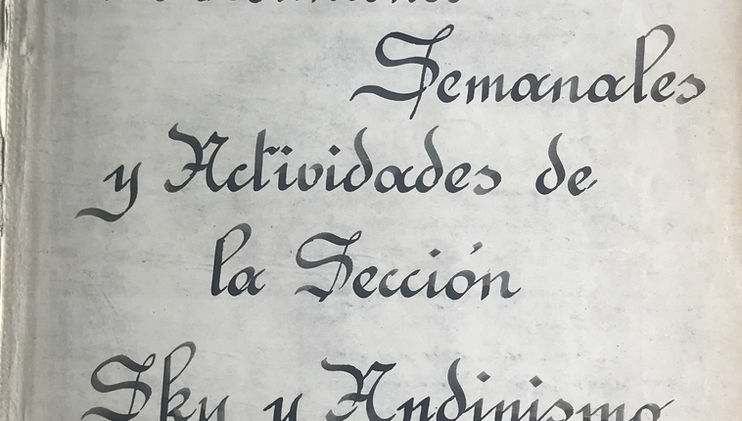 Semanales
y Actividades de
la Sección
Sky y Andinismo